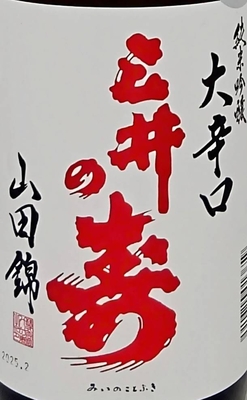 純米吟醸
大辛口
三井の寿
山田錦
2025.2
みいのことぶき